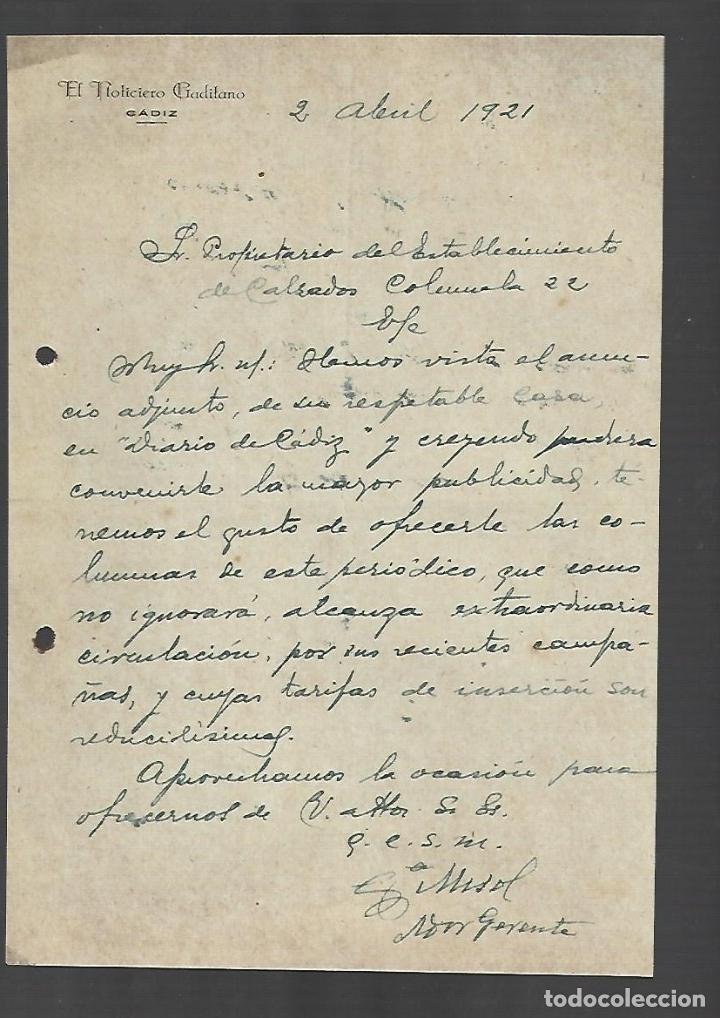 El Noticiero Gaditano
CÁDIZ
2 Abril 1921
Sr. Propietario del Establecimiento
de Calzados Columela 22
Muy Sr. nj.: Hemos visto el anun-
cio adjunto, de su respetable Casa,
en "Diario de Cádiz" y creyendo pudiera
convenirle la mayor publicidad, te-
nemos el gusto de ofrecerle las co-
lumnas de este periódico, que como
no ignorará, alcanza extraordinaria
circulación, por sus recientes campa-
ñas, y cuyas tarifas de inserción son
reducidísimas.
Aprovechamos la ocasión para
ofrecernos de V. attos. Ss. Ss.
q. e. s. m.
Misol
Ador Gerente
todocoleccion